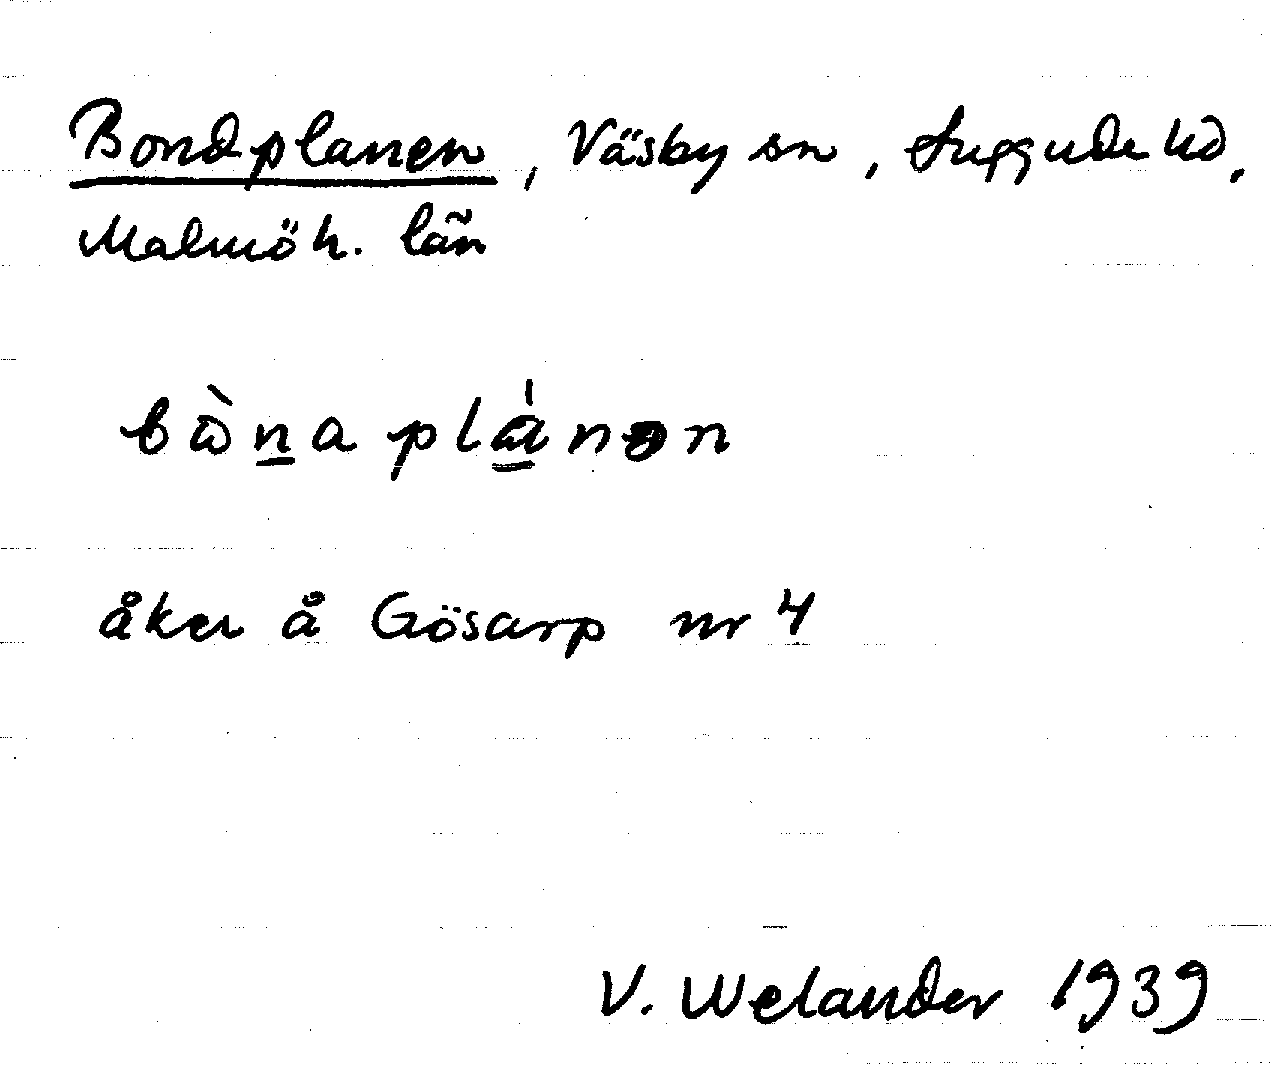 Bondplanen, Väsby sn, Luggude hd.
Malmöh. län
bò̱naplánən
åker å Gösarp nr 4
V. Welander 1939